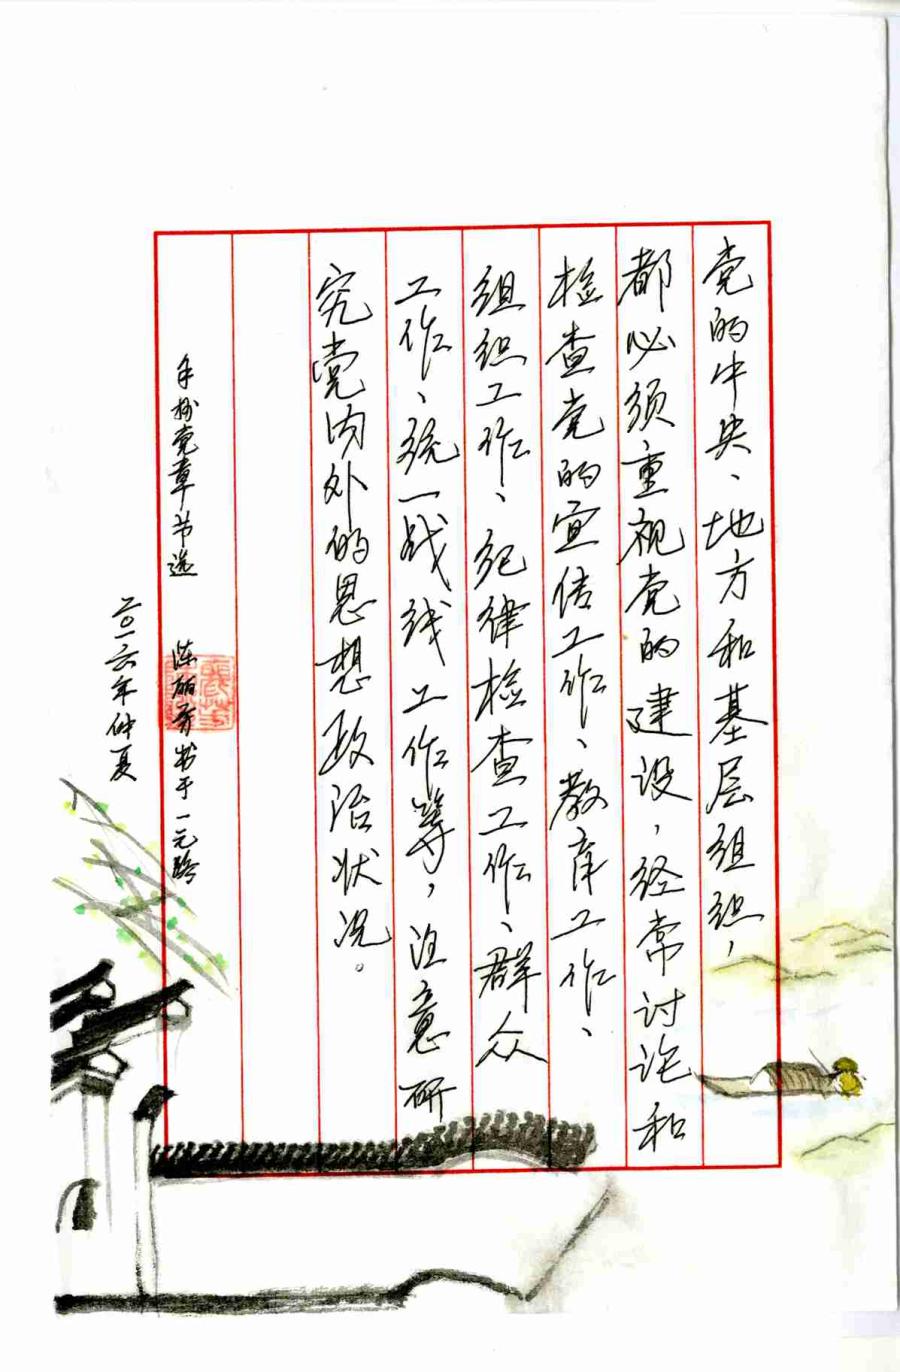 党的中央、地方和基层组织，
都必须重视党的建设，经常讨论和
检查党的宣传工作、教育工作、
组织工作、纪律检查工作、群众
工作、统一战线工作等，注意研
究党内外的思想政治状况。
手抄党章节选 陈丽芳书于一元
二〇一六年仲夏